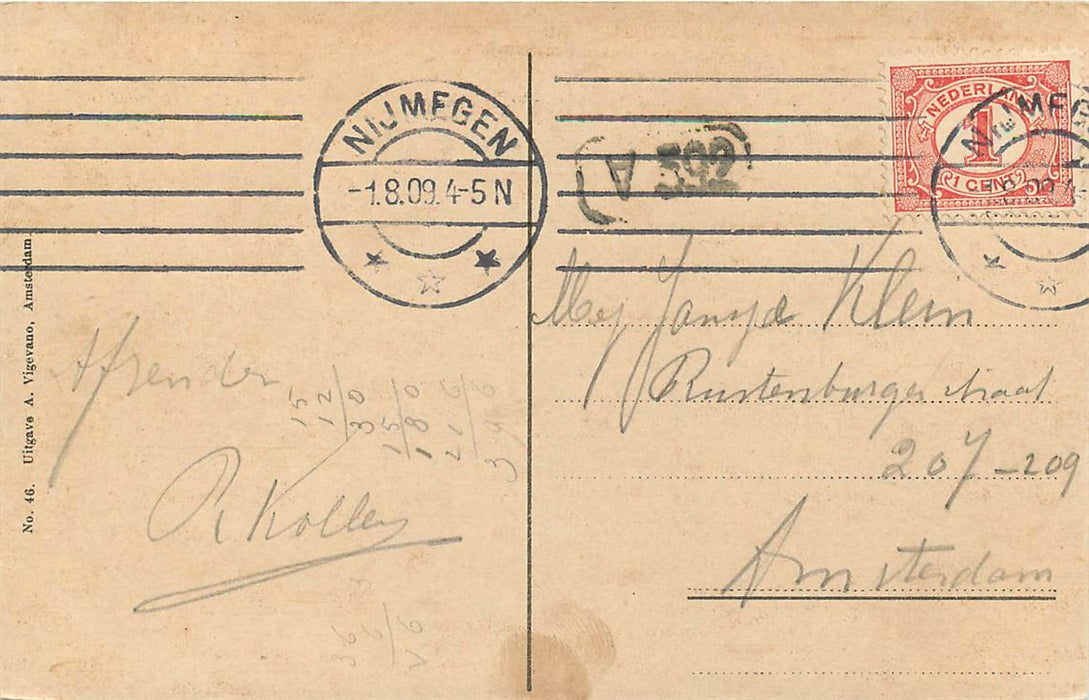 NIJMEGEN
-1.8.09.4-5N
A 599
NEDERLAND
1
1 CENT
NIJMEGEN
Mej Klein
Rustenburgerstraat
207-209
Amsterdam
Afzender
Kolley
15
12
30
15
180
216
396
No. 46. Uitgave A. Vigevano, Amsterdam.